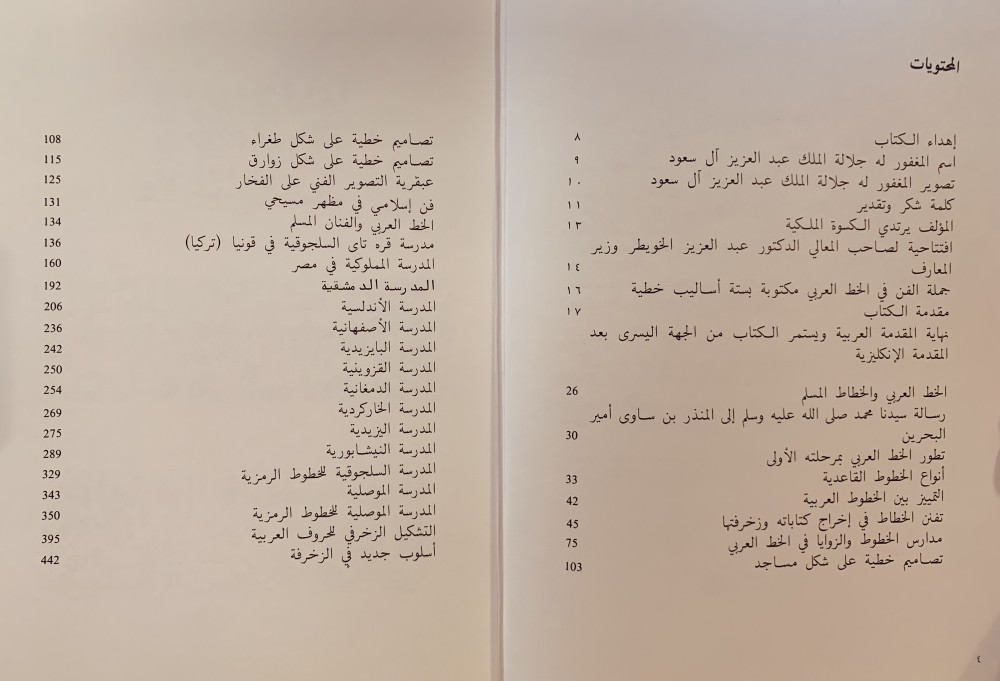 المحتويات
إهداء الكتاب ٨
اسم المغفور له جلالة الملك عبد العزيز آل سعود ٩
تصوير المغفور له جلالة الملك عبد العزيز آل سعود ١٠
كلمة شكر وتقدير ١١
المؤلف يرتدي الكسوة الملكية ١٣
افتتاحية لصاحب المعالي الدكتور عبد العزيز الخويطر وزير
المعارف ١٤
جملة الفن في الخط العربي مكتوبة بستة أساليب خطية ١٦
مقدمة الكتاب ١٧
نهاية المقدمة العربية ويستمر الكتاب من الجهة اليسرى بعد
المقدمة الإنكليزية
الخط العربي والخطاط المسلم 26
رسالة سيدنا محمد صلى الله عليه وسلم إلى المنذر بن ساوى أمير
البحرين 30
تطور الخط العربي بمرحلته الأولى
أنواع الخطوط القاعدية 33
التمييز بين الخطوط العربية 42
تفنن الخطاط في إخراج كتاباته وزخرفتها 45
مدارس الخطوط والزوايا في الخط العربي 75
تصاميم خطية على شكل مساجد 103
٤
تصاميم خطية على شكل طغراء 108
تصاميم خطية على شكل زوارق 115
عبقرية التصوير الفني على الفخار 125
فن إسلامي في مظهر مسيحي 131
الخط العربي والفنان المسلم 134
مدرسة قره تاى السلجوقية في قونيا (تركيا) 136
المدرسة المملوكية في مصر 160
المدرسة الدمشقية 192
المدرسة الأندلسية 206
المدرسة الأصفهانية 236
المدرسة البايزيدية 242
المدرسة القزوينية 250
المدرسة الدمغانية 254
المدرسة الخاركردية 269
المدرسة اليزيدية 275
المدرسة النيشابورية 289
المدرسة السلجوقية للخطوط الرمزية 329
المدرسة الموصلية 343
المدرسة الموصلية للخطوط الرمزية 350
التشكيل الزخرفي للحروف العربية 395
أسلوب جديد في الزخرفة 442